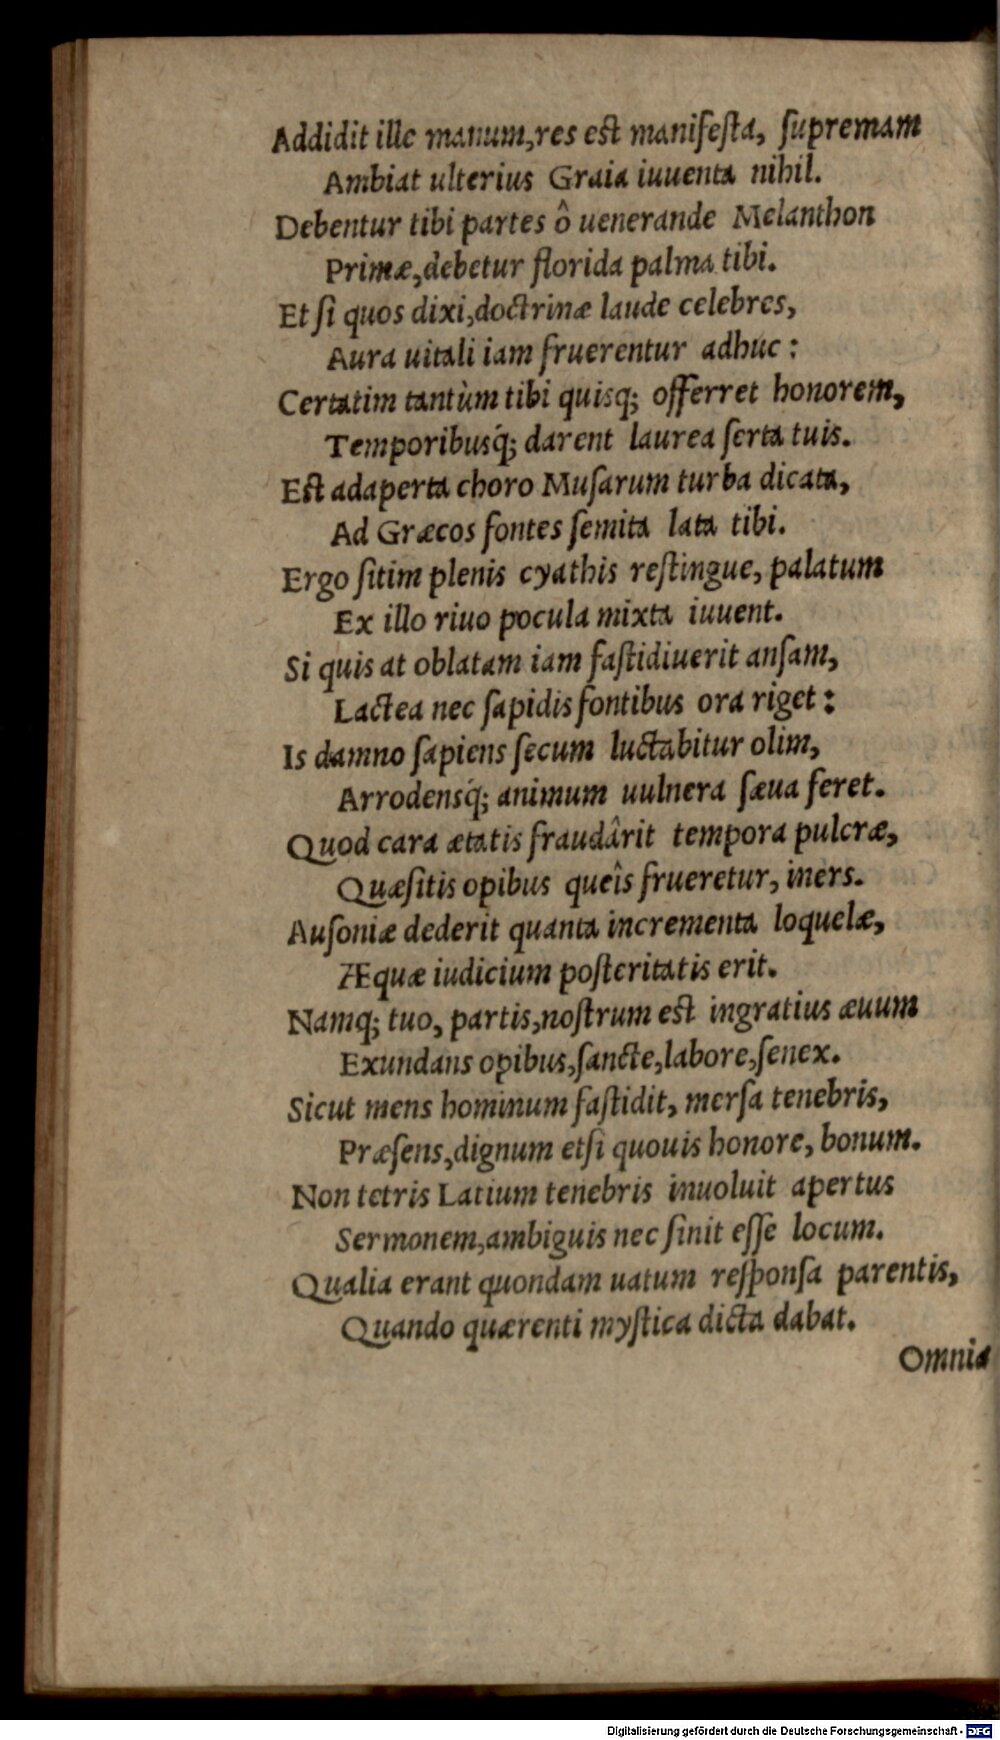 Addidit ille manum,res est manifesta, supremam
Ambiat ulterius Graia iuuenta nihil.
Debentur tibi partes ô uenerande Melanthon
Primæ,debetur florida palma tibi.
Et si quos dixi,doctrinæ laude celebres,
Aura uitali iam fruerentur adhuc:
Certatim tantùm tibi quisq; offerret honorem,
Temporibusq́; darent laurea serta tuis.
Est adaperta choro Musarum turba dicata,
Ad Græcos fontes semita lata tibi.
Ergo sitim plenis cyathis restingue, palatum
Ex illo riuo pocula mixta iuuent.
Si quis at oblatam iam fastidiuerit ansam,
Lactea nec sapidis fontibus ora riget:
Is damno sapiens secum luctabitur olim,
Arrodensq́; animum uulnera sæua feret.
Quod cara ætatis fraudârit tempora pulcræ,
Quæsitis opibus queîs frueretur, iners.
Ausoniæ dederit quanta incrementa loquelæ,
Æquæ iudicium posteritatis erit.
Namq; tuo, partis,nostrum est ingratius æuum
Exundans opibus,sancte,labore,senex.
Sicut mens hominum fastidit, mersa tenebris,
Præsens,dignum etsi quouis honore, bonum.
Non tetris Latium tenebris inuoluit apertus
Sermonem,ambiguis nec sinit esse locum.
Qualia erant quondam uatum responsa parentis,
Quando quærenti mystica dicta dabat.
Omnia
Digitalisierung gefördert durch die Deutsche Forschungsgemeinschaft - DFG